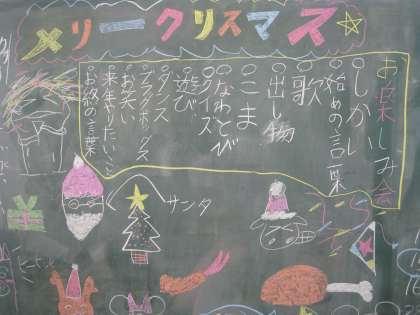 メリークリスマス
お楽しみ会
○しかい
○始めの言葉
○歌
○出し物
○こま
○なわとび
○クイズ
○遊び
○ダンス
○ブラックボックス
○お笑い
○来年やりたいこと
○お終の言葉
サンタ